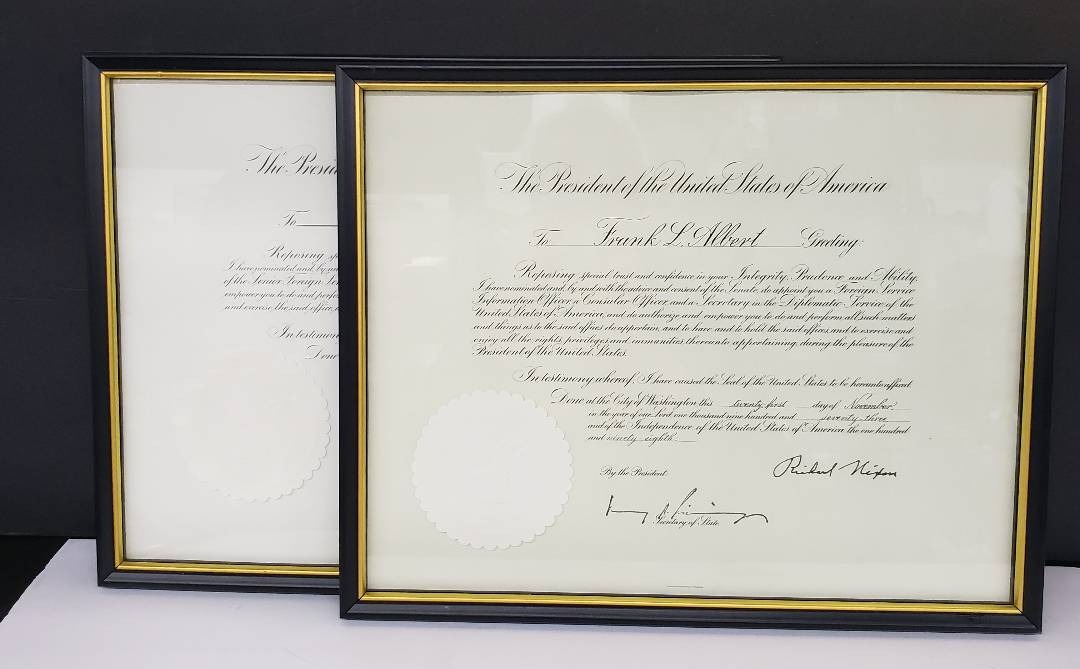 The Presid
To
Reposing sp
I have nominated and, by an
of the Senior Foreign Ser
empower you to do and perfo
and exercise the said office,
In testimon
Done
The President of the United States of America
To Frank L. Albert Greeting:
Reposing special trust and confidence in your Integrity, Prudence, and Ability,
I have nominated and, by and with the advice and consent of the Senate, do appoint you a Foreign Service
Information Officer, a Consular Officer, and a Secretary in the Diplomatic Service of the
United States of America, and do authorize and empower you to do and perform all such matters
and things as to the said offices do appertain, and to have and to hold the said offices, and to exercise and
enjoy all the rights, privileges, and immunities thereunto appertaining, during the pleasure of the
President of the United States.
In testimony whereof, I have caused the Seal of the United States to be hereunto affixed.
Done at the City of Washington this twenty-first day of November,
in the year of our Lord one thousand nine hundred and seventy-three
and of the Independence of the United States of America the one hundred
and ninety-eighth.
By the President:
Richard Nixon
Henry A. Kissinger
Secretary of State.